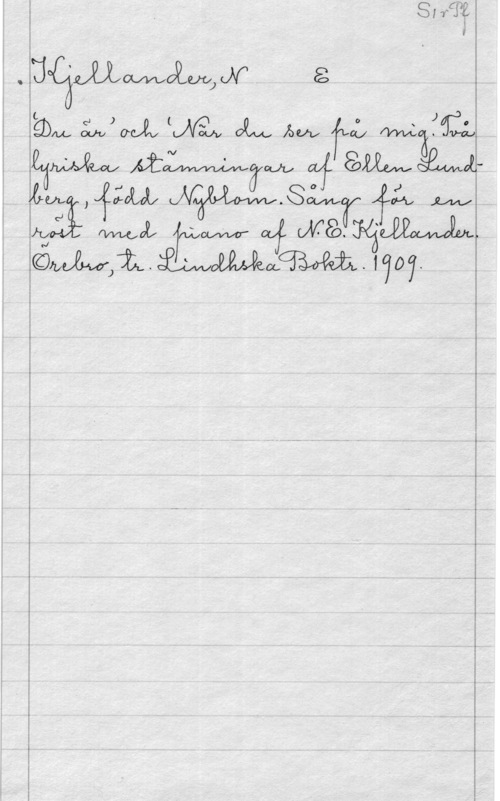 S1rPf
Kjellander, N E
'Du är' och 'När du ser på mig.' Två
lyriska stämningar af Ellen Lund-
berg, född Nyblom. Sång för en
röst med piano af N.E. Kjellander.
Örebro, tr. Lindhska Boktr. 1909.